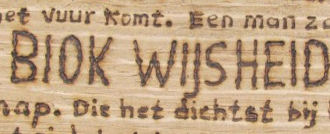 het vuur komt. Een man za
BIOK WIJSHEID
nap. Die het dichtst bij